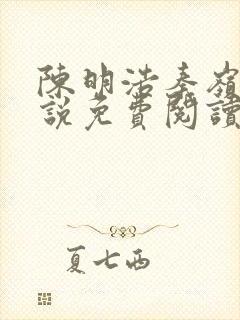 陳明浩秦嶺
說免費閱讀
夏七西